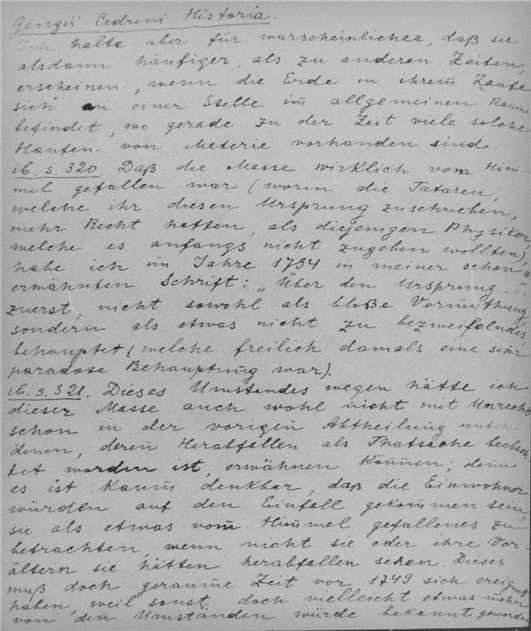 Georgii Cedreni Historia.
Ich halte aber für warscheinlicher, daß sie
alsdann häufiger, als zu anderen Zeiten
erscheinen, wenn die Erde in ihrem Laufe
sich an einer Stelle im allgemeinen Raume
befindet, wo gerade zu der Zeit viele solche
Haufen von Meterie vorhanden sind.
ib. s. 320. Daß die Masse wirklich vom Him-
mel gefallen war (worin die Tataren,
welche ihr diesen Ursprung zuschrieben,
mehr Recht hatten, als diejenigen Physiker
welche es anfangs nicht zugeben wollten),
habe ich im Jahre 1794 in meiner schon
erwähnten Schrift: „Über den Ursprung..."
zuerst, nicht sowohl als bloße Vermuthung
sondern als etwas nicht zu bezweifelndes
behauptet (welche freilich damals eine sehr
paradoxe Behauptung war).
ib. s. 321. Dieses Umstandes wegen hätte ich
dieser Masse auch wohl nicht mit Unrecht
schon in der vorigen Abtheilung unter
denen, deren Herabfallen als Thatsache beobach
tet worden ist, erwähnen können; denn
es ist kaum denkbar, daß die Einwohner
würden auf den Einfall gekommen sein
sie als etwas vom Himmel gefallenes zu
betrachten, wenn nicht sie oder ihre Vor
ältern sie hätten herabfallen sehen. Dieses
muß doch geraume Zeit vor 1749 sich ereignet
haben, weil sonst doch vielleicht etwas mehr
von den Umständen würde bekannt geworden